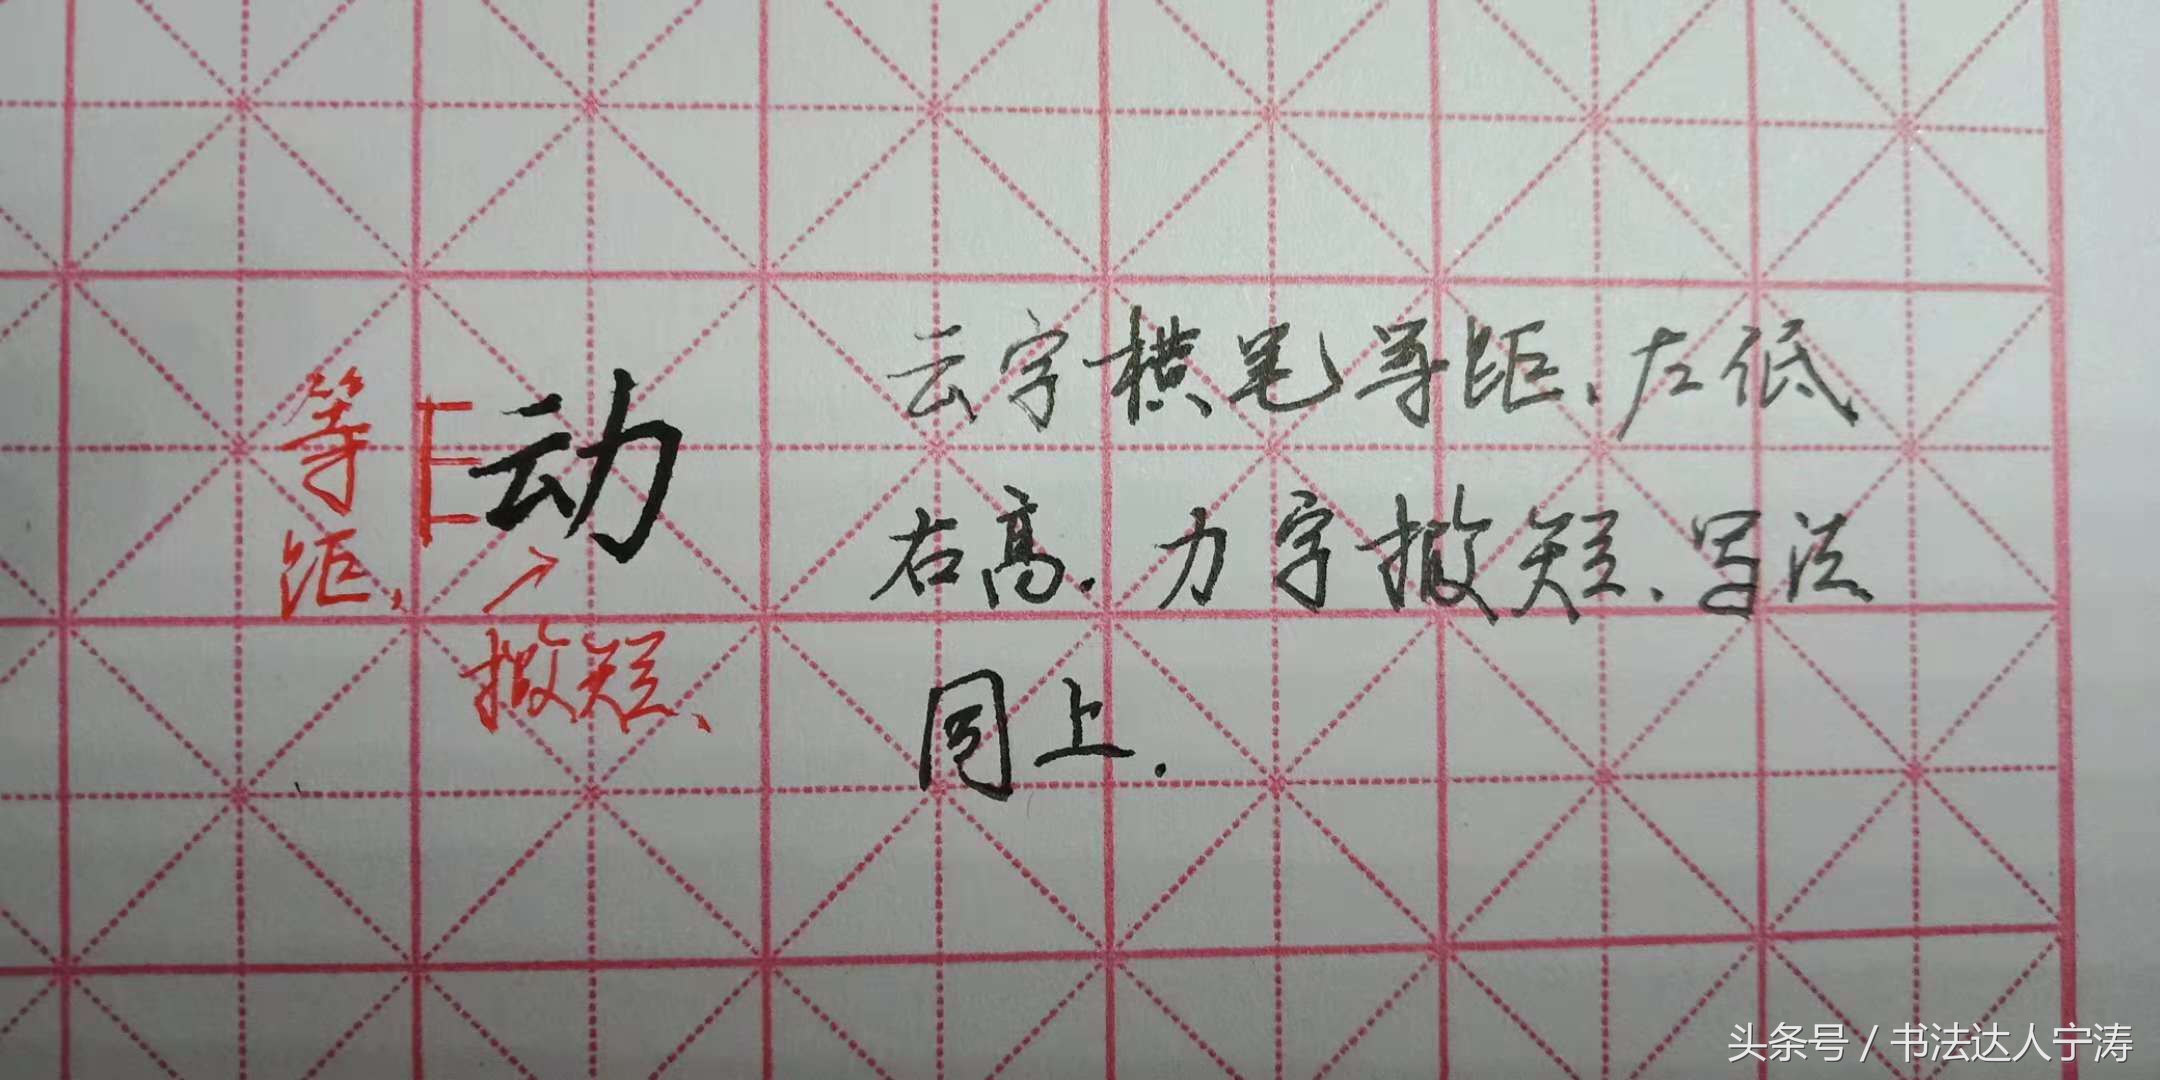 等距、
动
撇短、
云字横笔等距、左低
右高.力字撇短、写法
同上.
头条号 / 书法达人宁涛